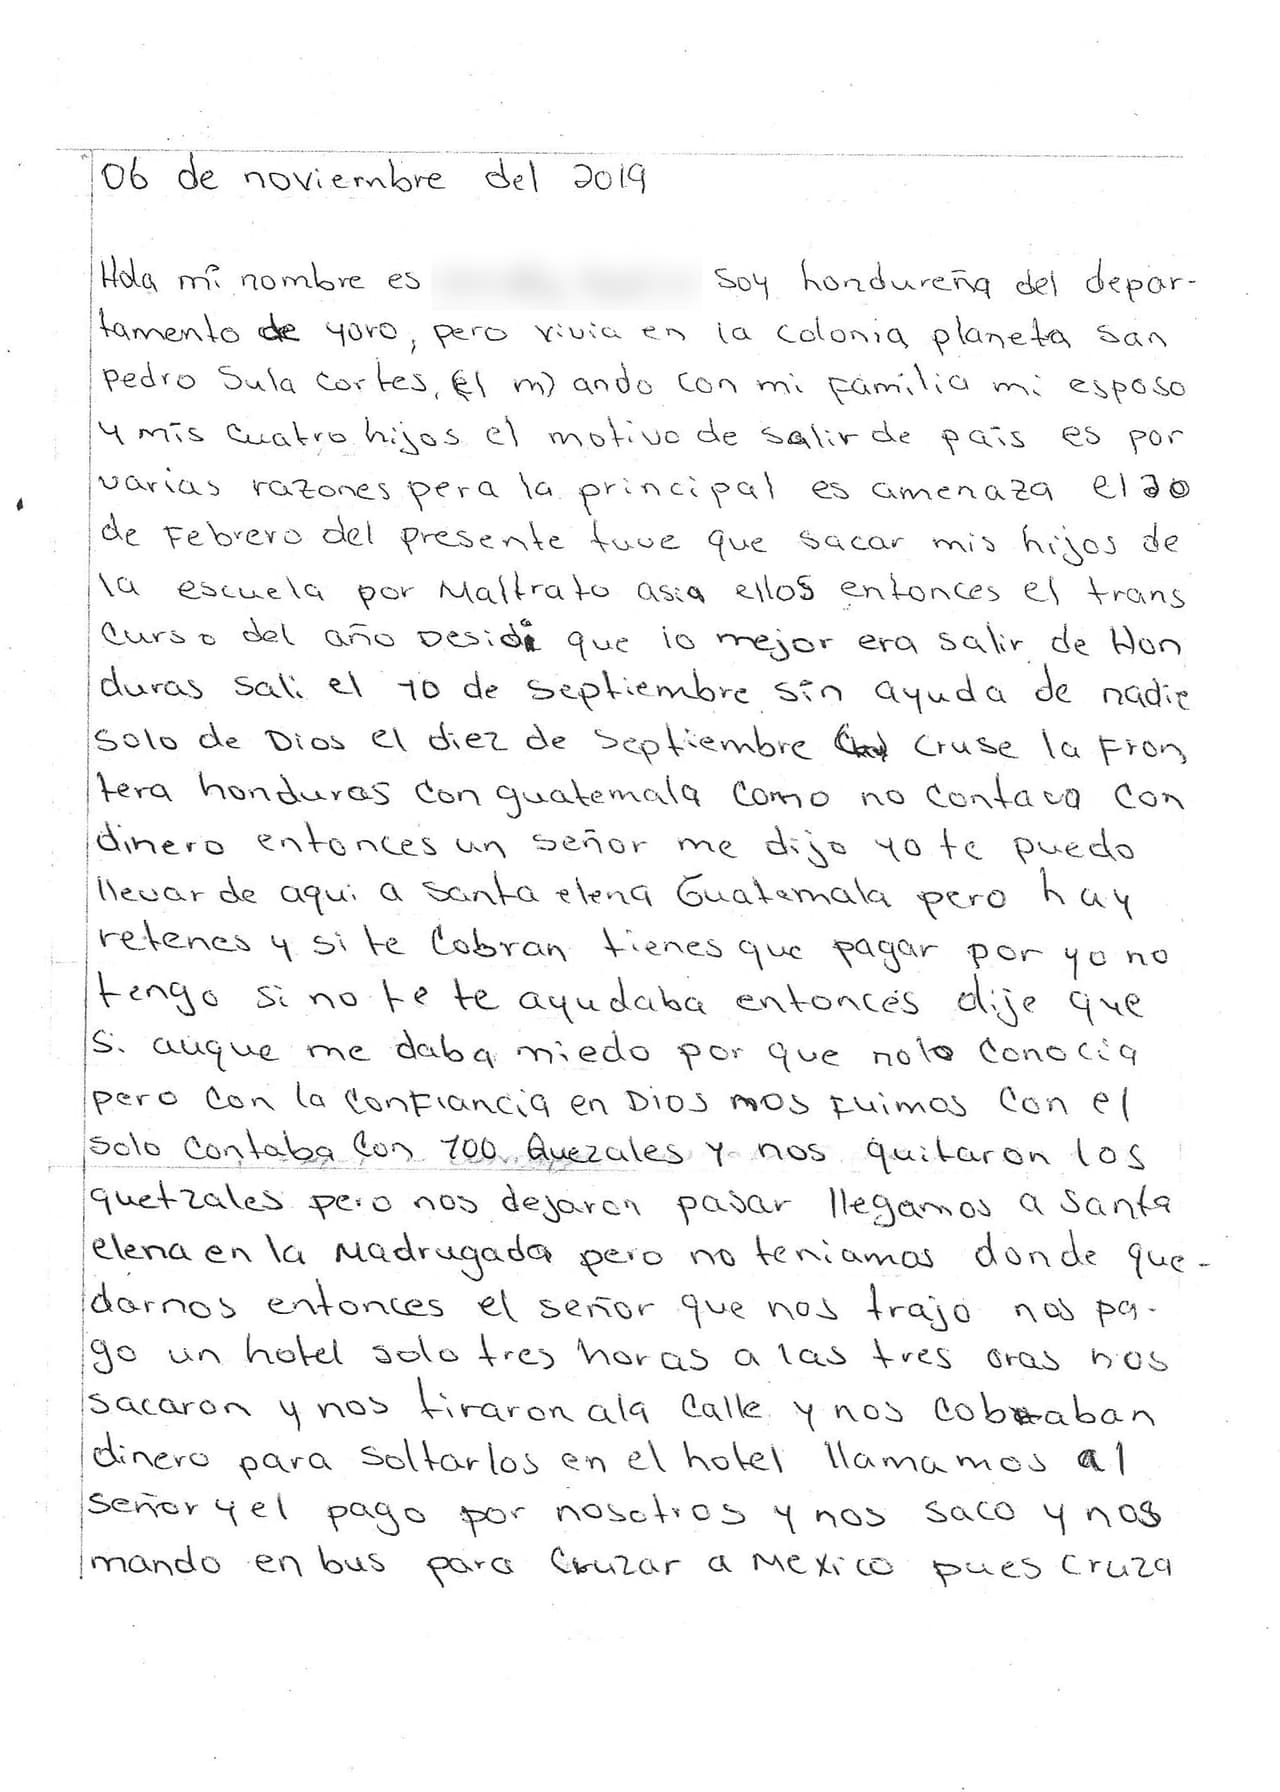 06 de noviembre del 2019
Hola mi nombre es soy hondureña del depar-
tamento de yoro, pero vivia en la colonia planeta san
pedro Sula cortes, (el m) ando con mi familia mi esposo
y mis cuatro hijos el motivo de salir de pais es por
varias razones pera la principal es amenaza el 20
de Febrero del presente tuve que sacar mis hijos de
la escuela por Maltrato asia ellos entonces el trans
curso del año Desidi que lo mejor era salir de Hon
duras sali el 10 de septiembre sin ayuda de nadie
solo de Dios el diez de septiembre cruse la Fron
tera honduras con guatemala como no contava con
dinero entonces un señor me dijo yo te puedo
llevar de aqui a santa elena Guatemala pero hay
retenes y si te cobran tienes que pagar por yo no
tengo si no te te ayudaba entonces dije que
si auque me daba miedo por que no lo conocia
pero con la confiancia en Dios nos fuimos con el
solo contaba con 700 Quezales y nos quitaron los
quetzales pero nos dejaron pasar llegamos a santa
elena en la Madrugada pero no teniamos donde que-
darnos entonces el señor que nos trajo nos pa-
go un hotel solo tres horas a las tres oras nos
sacaron y nos tiraron ala calle y nos cobraban
dinero para soltarlos en el hotel llamamos al
señor y el pago por nosotros y nos saco y nos
mando en bus para cruzar a Mexico pues cruza